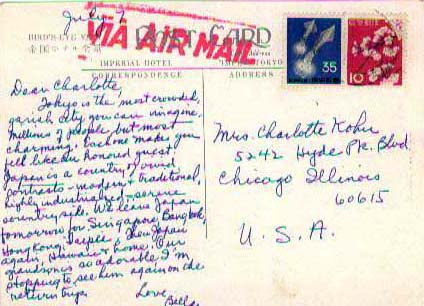 July 7
POST CARD
VIA AIR MAIL
BIRD'S-EYE VIEW
IMPERIAL HOTEL
CORRESPONDENCE
ADDRESS
35
10
Dear Charlotte,
Tokyo is the most crowded,
garish city you can imagine.
Millions of people but most
charming. Each one makes you
fell like an honored guest.
Japan is a country of vivid
contrasts - modern & traditional,
highly industrialized - serene
countryside. We leave Japan
tomorrow for Singapore, Bangkok,
Hongkong, Taipei & then Japan
again, Hawaii & home. Our
grandson is so adorable I'm
stopping to see him again on the
return trip.
Love,
Bella
Mrs. Charlotte Kohn
5242 Hyde Pk. Blvd
Chicago Illinois
60615
U.S.A.